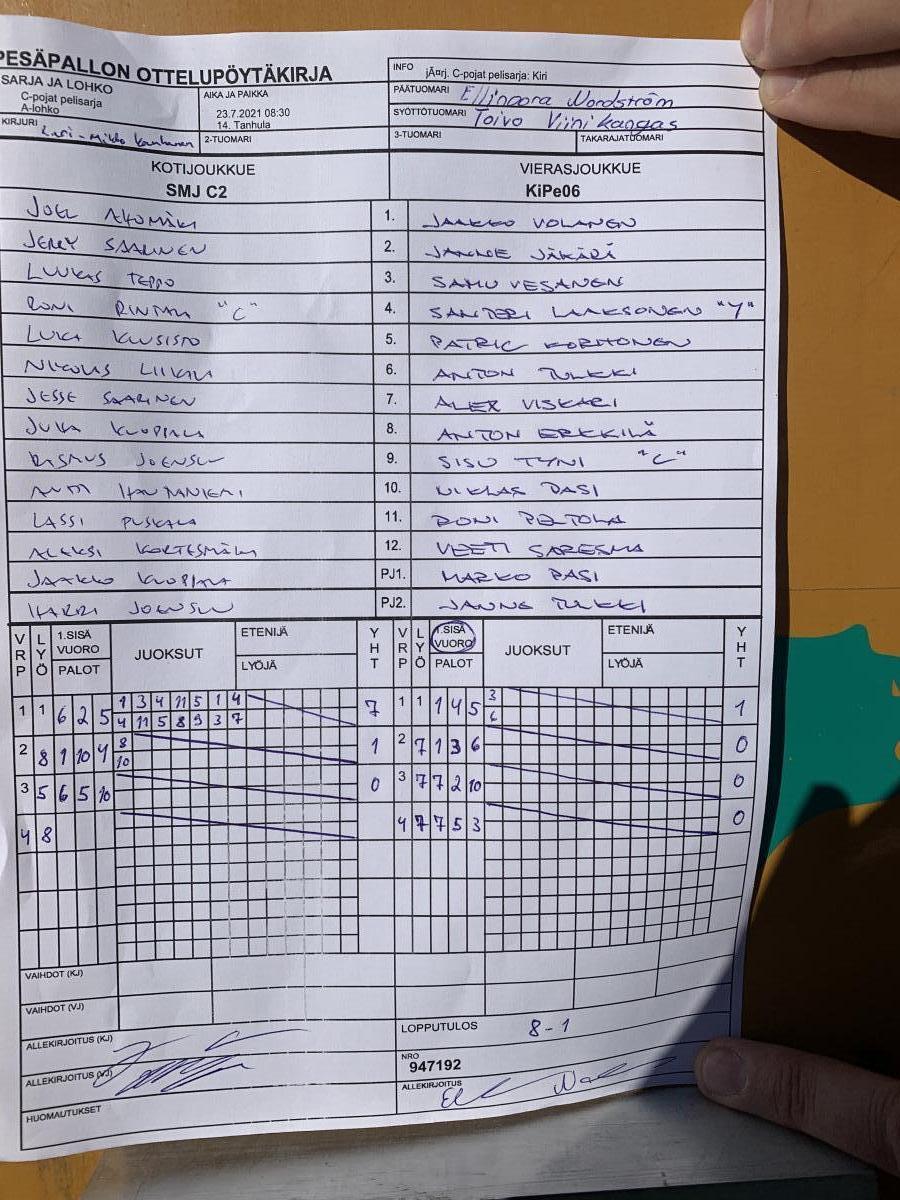 PESÄPALLON OTTELUPÖYTÄKIRJA
SARJA JA LOHKO
C-pojat pelisarja
A-lohko
AIKA JA PAIKKA
23.7.2021 08:30
14. Tanhula
KIRJURI
2-TUOMARI
INFO jÃ¤rj. C-pojat pelisarja: Kiri
PÄÄTUOMARI Ellinoora Nordström
SYÖTTÖTUOMARI Toivo Viinikangas
3-TUOMARI TAKARAJATUOMARI
KOTIJOUKKUE VIERASJOUKKUE
SMJ C2 KiPe06
JOEL AHOMÄKI 1. JAAKKO VOLANEN
JERRY SAARINEN 2. JANNE JÄKÄRÄ
LUUKAS TEPPO 3. SAMU VESANEN
RONI RINTALA "C" 4. SANTERI LAAKSONEN "Y"
LUKA KUUSISTO 5. PATRIC KORHONEN
NIKOLAS LIIKALA 6. ANTON TULKKI
JESSE SAARINEN 7. ALEX VISKARI
JUKA KUOPPALA 8. ANTON ERKKILÄ
RASMUS JOENSUU 9. SISU TYNI "C"
HAUTANIEMI 10. NIKLAS PASI
LASSI PUSKALA 11. RONI PELTOLA
ALEKSI KORTESMÄKI 12. VEETI SARESMA
JAAKKO KUOPPALA PJ1. MARKO PASI
HARRI JOENSUU PJ2. JANNE TULKKI
VRP LYÖ 1.SISÄ VUORO PALOT JUOKSUT ETENIJÄ LYÖJÄ YHT VRP LYÖ 1.SISÄ VUORO PALOT JUOKSUT ETENIJÄ LYÖJÄ YHT
1 1 6 2 5 1 3 4 11 5 1 4 7 1 1 1 4 5 3 1
4 11 5 8 9 3 7 6
2 8 1 10 4 8 1 2 7 1 3 6 0
10
3 5 6 5 10 0 3 7 7 2 10 0
4 8 4 7 7 5 3 0
VAIHDOT (KJ)
VAIHDOT (VJ)
ALLEKIRJOITUS (KJ)
LOPPUTULOS 8-1
ALLEKIRJOITUS (VJ)
NRO
947192
HUOMAUTUKSET
ALLEKIRJOITUS